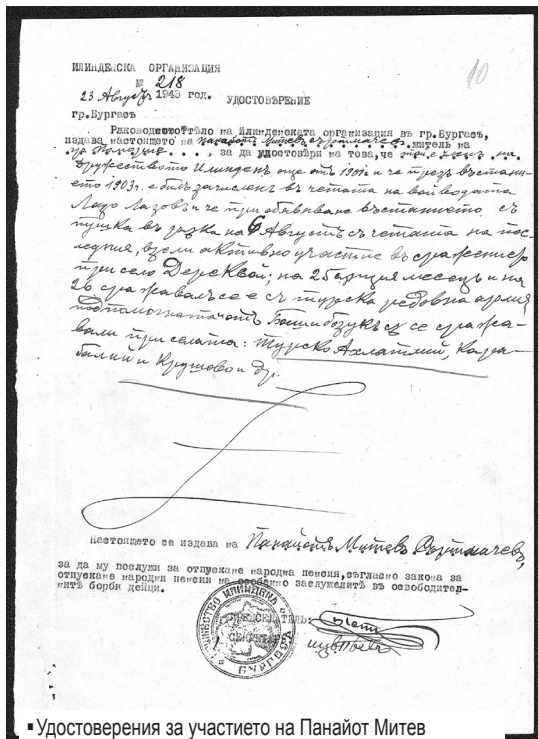 10
ИЛИНДЕНСКА ОРГАНИЗАЦИЯ
№ 218
23 Августъ 1943 год.
УДОСТОВѢРЕНИЕ
гр.Бургасъ
Рѫководното тѣло на Илинденската организация въ гр.Бургасъ,
издава настоящето на Панайотъ Митевъ житель на
за да удостовѣри на това, че
Дружеството Илинденъ още отъ 1901г. и че презъ въстани-
ето 1903г. е билъ зачисленъ въ четата на войводата
Лазовъ и че при обявяване въстанието съ
пушка въ рѫка на 6 Августъ съ четата на пос-
ледния, взели активно участие въ сражение
при село Дерекюй; на 25 сѫщия месецъ и на
26 сражавалъ се е съ турска редовна армия
подпомогната отъ Башибозукъ се сража-
вали при селата: Турско Ахлатлий, Кара-
балий и Крушово и др.
Настоящето се издава на Панайотъ Митевъ
за да му послужи за отпускане народна пенсия, съгласно закона за
отпускане народни пенсии на особенно заслужилитѣ въ освободител-
нитѣ борби дейци.
ПРЕДСЕДАТЕЛЬ:
СЕКРЕТАРЬ:
ДРУЖЕСТВО ИЛИНДЕНЪ
БУРГАСЪ
▪ Удостоверения за участието на Панайот Митев